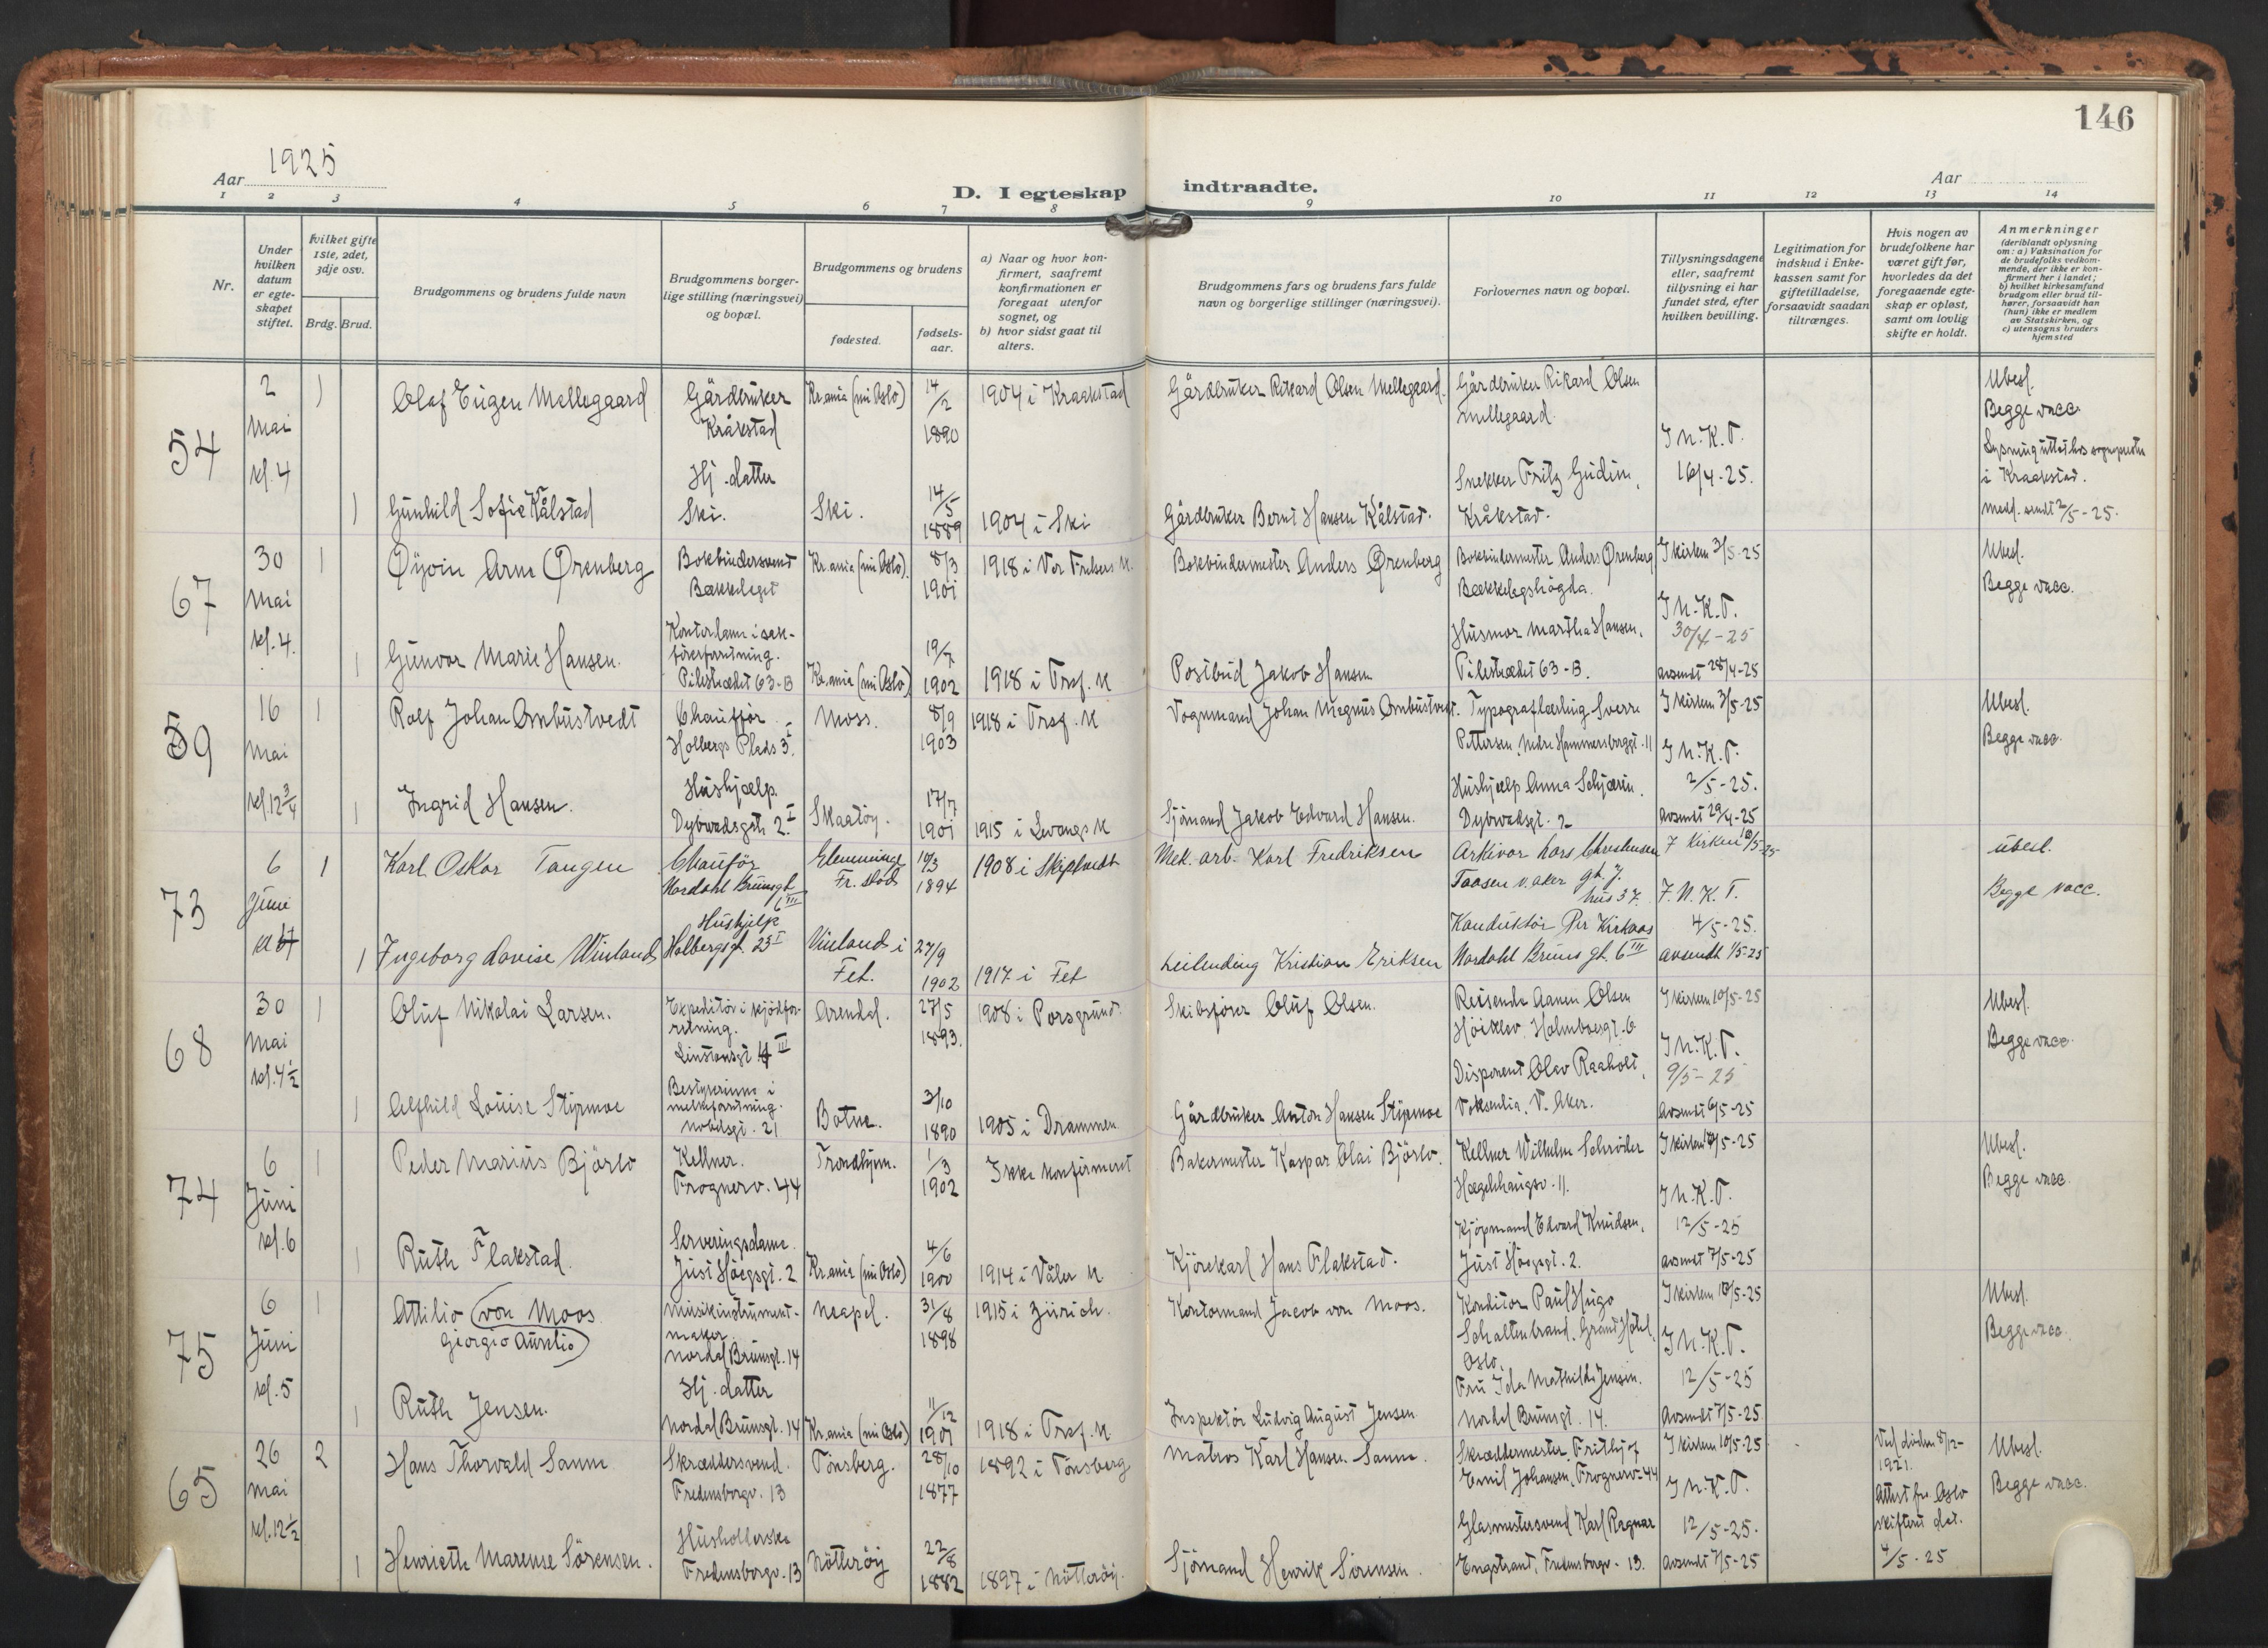 146
Aar 1925
D. I egteskap indtraadte.
Aar
1 2 3 4 5 6 7 8 9 10 11 12 13 14
Nr.
Under hvilken datum er egteskapet stiftet.
Hvilket gifte 1ste, 2det, 3dje osv.
Brdg. Brud.
Brudgommens og brudens fulde navn
Brudgommens borgerlige stilling (næringsvei) og bopæl.
Brudgommens og brudens
fødested.
fødselsaar.
a) Naar og hvor konfirmert, saafremt konfirmationen er foregaat utenfor sognet, og
b) hvor sidst gaat til alters.
Brudgommens fars og brudens fars fulde navn og borgerlige stillinger (næringsvei).
Forlovernes navn og bopæl.
Tillysningsdagene eller, saafremt tillysning ei har fundet sted, efter hvilken bevilling.
Legitimation for indskud i Enkekassen samt for giftetilladelse, forsaavidt saadan tiltrænges.
Hvis nogen av brudefolkene har været gift før, hvorledes da det foregaaende egteskap er opløst, samt om lovlig skifte er holdt.
Anmerkninger
(deriblandt oplysning om: a) Vaksination for de brudefolks vedkommende, der ikke er konfirmert her i landet; b) hvilket kirkesamfund brudgom eller brud tilhører, forsaavidt han (hun) ikke er medlem av Statskirken, og c) utensogns bruders hjemsted
54
2 Mai kl. 4
1 Olaf Eugen Mellegaard
Gårdbruker Kråkstad
Kr.ania (nu Oslo)
14/2 1890
1904 i Kraakstad
Gårdbruker Rikard Olsen Mellegaard.
Gårdbruker Rikard Olsen Mellegaard.
I N.K.T. 16/4-25.
Ubesl. Begge vacc.
i Kraakstad.
Medd. sendt 2/5-25.
1 Gunhild Sofie Kålstad
Hj. datter Ski.
Ski.
14/5 1889
1904 i Ski
Gårdbruker Bernt Hansen Kålstad.
Snekker Fritz Gudim, Kråkstad.
67
30 Mai kl. 4.
1 Øyvin Arne Ørenberg
Bokbindersvend Bækkelaget
Kr.ania (nu Oslo).
8/3 1901
1918 i Vor Frelsers K.
Bokbindermester Anders Ørenberg
Bokbindermester Anders Ørenberg Bækkelagshøgda.
I kirken 3/5-25
I N.K.T. 30/4-25
avsendt 28/4-25
Ubesl. Begge vacc.
1 Gunvor Marie Hansen.
Pilestrædet 63-B
Kr.ania (nu Oslo)
19/7 1902
1918 i Tref. K
Postbud Jakob Hansen
Husmor Martha Hansen, Pilestrædet 63-B.
59
16 Mai kl. 12 3/4
1 Rolf Johan Ombustvedt
Chauffør Holbergs Plads 3 I.
Moss.
8/9 1903
1918 i Tref. K
Vognmand Johan Magnus Ombustvedt.
Typograflærling Sverre Pettersen, Nedre Hammersborggt. 11
I kirken 3/5-25
I N.K.T. 2/5-25.
avsendt 29/4-25
Ubesl. Begge vacc.
1 Ingrid Hansen.
Hushjælp. Dybwadsgt. 2 I
Skaatøy.
17/7 1901
1915 i Levangs K
Sjømand Jakob Edvard Hansen.
Hushjælp Anna Schjærin. Dybwadsgt. 2
73
6 Juni
1 Karl Oskar Tangen
Chauför Nordahl Brunsgt. 6 III
Glemminge Fr. stad
10/3 1894
1908 i Skiptvedt
Mek. arb. Karl Fredriksen
Arkivar Lars Christensen Taasen v. Aker gt. 7. hus 37.
I kirken 10/5-25
I. N. K. T. 4/5-25.
avsendt 1/5-25
Ubesl. Begge vacc.
1 Ingeborg Lovise Vinland
Hushjelp Holbergsgt. 23 I
Vinland i Fet.
27/9 1902
1917 i Fet
Leilending Kristian Eriksen
Konduktør Per Kirkaas Nordahl Bruns gt. 6 III
68
30 Mai kl. 4 1/2
1 Oluf Nikolai Larsen.
Expeditör i kjödforretning.
Arendal.
27/5 1893.
1908 i Porsgrund.
Skibsfører Oluf Olsen.
Reisende Aanen Olsen Höiklev. Holmboegt. 6
I kirken 10/5-25
I N.K.T. 9/5-25
avsendt 6/5-25
Ubesl. Begge vacc.
1 Alfhild Louise Styrmoe
Bestyrerinne i melkeforretning. Nobelsgt. 21
Botne.
3/10 1890
1905 i Drammen.
Gårdbruker Anton Hansen Styrmoe
Disponent Olav Raaholt, Voksenlia, V. Aker.
74
6 Juni kl. 6
1 Peder Marius Bjørlo
Kellner. Frognerv. 44
Trondhjem.
1/3 1902
Ikke konfirmert
Bakermester Kaspar Olai Bjørlo.
Kellner Wilhelm Schrøder Hægehhaugsv. 11.
I kirken 10/5-25
I N.K.T. 12/5-25
avsendt 7/5-25
Ubesl. Begge vacc.
1 Ruth Flakstad.
Serveringsdame. Just Höegsgt. 2
Kr.ania (nu Oslo)
4/6 1900
1914 i Våler K
Kjörekarl Hans Flakstad.
Kjöpmand Edvard Knudsen, Just Höegsgt. 2.
75
6 Juni kl. 5
1 Attilio von Moos Giorgio Aurelio
Musikinstrumentmaker. Nordal Brunsgt. 14
Neapel.
31/8 1898
1915 i Zürich.
Kontormand Jacob von Moos.
Konditor Paul Hugo Schaltenbrand. Grand Hotel, Oslo.
I kirken 10/5-25
I N.K.T. 12/5-25
Avsendt 7/5-25
Ubesl. Begge vacc.
1 Ruth Jensen.
Hj. datter Nordal Brunsgt. 14
Kr.ania (nu Oslo)
11/12 1901
1918 i Tref. K
Inspektör Ludvig August Jensen.
Fru Ida Mathilde Jensen. Nordal Brunsgt. 14.
65
26 Mai kl. 12 1/2
2 Hans Thorvald Sanne
Skræddersvend. Fredensborgv. 13
Tönsberg.
28/10 1877
1892 i Tönsberg
Matros Karl Hansen Sanne.
Skræddermester Frithjof Emil Johansen, Frognerv. 44
I kirken 10/5-25
I N.K.T. 12/5-25.
Avsendt 7/5-25
Ved döden 8/12-1921. Attest fra Oslo skifterett dat. 4/5-25
Ubesl. Begge vacc.
1 Henriette Marense Sörensen.
Husholderske Fredensborgv. 13
Nötteröy
22/8 1882
1897 i Nötteröy.
Sjömand Henrik Sörensen.
Glasmestersvend Karl Ragnar Engstrand, Fredensborgv. 13.